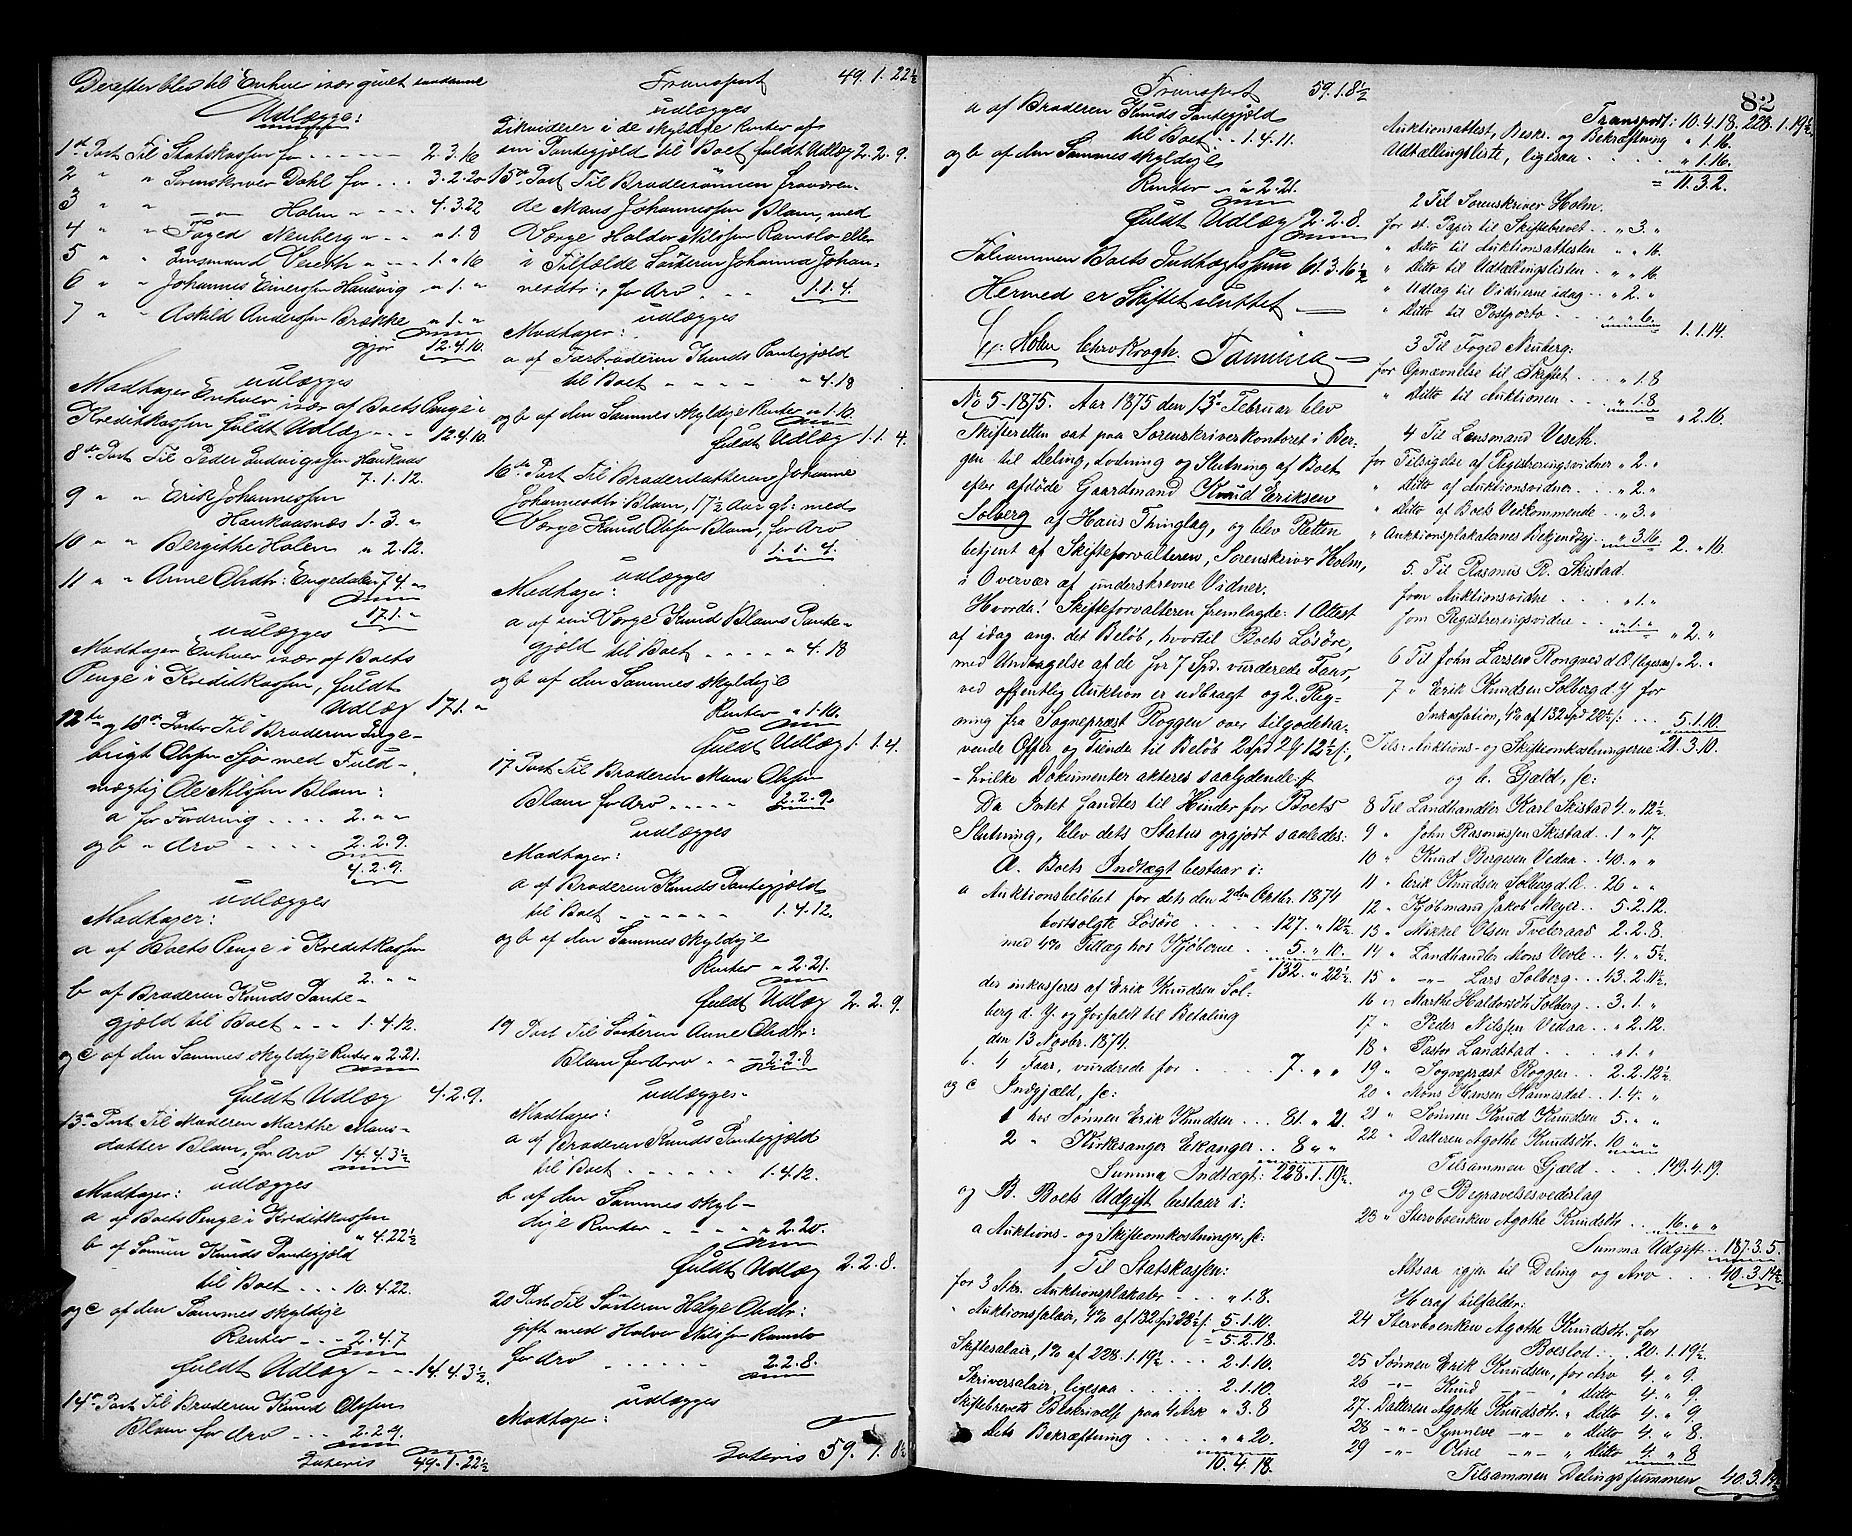 Derefter blev til Enhver især gjort saadanne
Udlægge:
1ste Post Til Statskassen for - - - - - 2. 3. 16
2 " " Sorenskriver Dahl for - - - 3. 2. 20
3 " " —"— Holm " - - - 4. 3. 22
4 " " Foged Neuberg " - - " 1. 8
5 " " Lensmand Veseth " - - - 1. " 16
6 " " Johannes Einersen Hausvig " 1. "
7 " " Askild Andersen Brække " 1. "
gjør 12. 4. 10.
udlægges
Modtager Enhver især af Boets Penge i
Kreditkassen fuldt Udlæg - - - 12. 4. 10.
8de Post Til Peder Ludvigssen Haukaas
7. 1. 12.
9 " " Erik Johannessen
Haukaasnæs 1. 3. "
10 " " Bergitthe Holen " 2. 12.
11 " " Anne Olsdtr: Engedalen 7. 4. "
17. 1. "
udlægges
Modtager Enhver især af Boets
Penge i Kreditkassen, fuldt
Udlæg 17. 1. "
12te og 18de Poster Til Broderen Inge-
brigt Olsen Sjø med Fuld-
mægtig Ole Nilssen Blom:
a for Fordring . . . . 2. " "
og b " Arv . . . . . 2. 2. 9.
4. 2. 9.
udlægges
Modtager:
a af Boets Penge i Kreditkassen
2. " "
b af Broderen Knuds Pante-
gjæld til Boet - - - 1. 4. 12.
og c af den Sammes skyldige Renter " 2. 21.
fuldt Udlæg 4. 2. 9.
13de Post Til Moderen Marthe Mons-
datter Blom, for Arv 14. 4. 3½
udlægges
Modtager:
a af Boets Penge i Kreditkassen
" 4. 22½
b af Sønnen Knuds Pantegjæld
til Boet - - - 10. 4. 22.
og c af den Sammes skyldige
Renter - - - 2. 4. 7
fuldt Udlæg - - 14. 4. 3½.
14de Post Til Broderen Knud Olsen
Blom for Arv - - - 2. 2. 9.
Lateris 49. 1. 22½
Transport 49. 1. 22½
udlægges
Likviderer i de skyldige Renter af
sin Pantegjæld til Boet fuldt Udlæg 2. 2. 9.
15de Post Til Brodersønnen fraværen-
de Mons Johannessen Blom, med
Værge Haldor Nilssen Ramslo eller
i Tilfælde Søsteren Johanna Johan-
nesdtr:, for Arv - - - 1. 1. 4.
udlægges
Modtager:
a af Farbroderen Knuds Pantegjæld
til Boet " - - - - " 4. 18
og b af den Sammes skyldige Renter " 1. 10.
fuldt Udlæg 1. 1. 4.
16de Post Til Broderdatteren Johanne
Johannesdtr: Blom, 17½ Aar gl: med
Værge Knud Olsen Blom, for Arv
1. 1. 4.
udlægges
Modtager:
a af sin Værge Knud Bloms Pante-
gjæld til Boet - - - - " 4. 18
og b af den Sammes skyldige
Renter " 1. 10.
fuldt Udlæg 1. 1. 4.
17 Post Til Broderen Mons Olsen
Blom for Arv . . . . . 2. 2. 9.
udlægges
Modtager:
a af Broderen Knuds Pantegjæld
til Boet - - - - - - 1. 4. 12.
og b af den Sammes skyldige
Renter " 2. 21.
fuldt Udlæg 2. 2. 9.
19 Post Til Søsteren Anne Olsdtr:
Blom for Arv - - - 2. 2. 8
udlægges
Modtager:
a af Broderen Knuds Pantegjæld
til Boet - - - - - - 1. 4. 12.
b af den Sammes skyl-
dige Renter - - - - " 2. 20.
fuldt Udlæg 2. 2. 8.
20 Post Til Søsteren Helge Olsdtr:
gift med Halvor Nilssen Ramslo
for Arv . . . . . . . 2. 2. 8.
udlægges
Modtager:
Lateris 59. 1. 8½
82
Transport 59. 1. 8½
a af Broderen Knuds Pantegjæld
til Boet . . . 1. 4. 11.
og b af den Sammes skyldige
Renter " " 2. 21.
fuldt Udlæg 2. 2. 8.
Tilsammen Boets Indtægtssum 61. 3. 16½
Hermed er Skiftet sluttet —
Holm Chr Krogh.
No 5-1875. Aar 1875 den 13de Februar blev
Skifteretten sat paa Sorenskriverkontoret i Ber-
gen til Deling, Lodning og Slutning af Boet
efter afdøde Gaardmand Knud Eriksen
Solberg af Haus Thinglag, og blev Retten
betjent af Skifteforvalteren, Sorenskriver Holm,
i Overvær af underskrevne Vidner.
Hvorda! Skifteforvalteren fremlagde: 1 Attest
af idag ang. det Beløb, hvortil Boets Løsøre,
med Undtagelse af de for 7 Spd. vurderede Faar,
ved offentlig Auktion er udbragt og 2. Reg-
ning fra Sogneprest Roggen over tilgodeha-
vende Offer og Tiende til Beløb 2 Spd 2 ₰ 12½ s:,
- hvilke Dokumenter akteres saalydende:
Da Intet fandtes til Hinder for Boets
Slutning, blev dets Status opgjort saaledes:
A. Boets Indtægt bestaar i:
a Auktionsbeløbet for dets den 2den Oktbr. 1874
bortsolgte Løsøre . . . . . 127. " 12½
med 4% Tillæg hos Kjøberne . . . 5. " 10.
132. " 22½
der inkasseres af Erik Knudsen Sol-
berg d. Y. og forfaldt til Betaling
den 13 Novbr. 1874.
b. 4 Faar, vurderede for . . . . . 7. " "
og c Indgjæld, sc:
1 hos Sønnen Erik Knudsen . . . 81. " 21.
2 " Kirkesanger Ekanger . . 8 " "
Summa Indtægt: 228. 1. 19½.
og B. Boets Udgift bestaar i:
a Auktions- og Skifteomkostninger, sc:
1 Til Statskassen:
for 3 Stkr. Auktionsplakater . . . " 1. 8.
" Auktionssalair, 4% af 132 Spd 22½ s. 5. 1. 10.
= 5. 2. 18.
Skiftesalair, 1% af 228. 1. 19½ . . . 2. 1. 10.
Skriversalair, ligesaa . . . . . 2. 1. 10.
Skiftebrevets Beskrivelse paa 4 Ark " 3. 8
Dets Bekræftning . . . . . " " 20.
10. 4. 18.
Transport: 10. 4. 18. 228. 1. 19½
Auktionsattest, Beskr. og Bekræftning " 1. 16.
Udtællingsliste, ligesaa . . . . . " 1. 16.
= 11. 3. 2.
2 Til Sorenskriver Holm.
for st. Papir til Skiftebrevet . . " 3. "
" Ditto til Auktionsattesten . . " " 16.
" Ditto til Udtællingslisten . . " " 16
" Udlæg til Vidnerne idag . . " 2. "
" Ditto til Postporto . . . . . " " 6. 1. 1. 14.
3 Til Foged Neuberg:
for Opnævnelse til Skiftet . . . " 1. 8
" Ditto til Auktionen . . . " 1. 8 " 2. 16.
4 Til Lensmand Veseth.
for Tilsigelse af Registreringsvidner " 2. "
" Ditto af Auktionsvidner . . . " 2. "
" Ditto af Boets Vedkommende . . " 3. "
" Auktionsplakaternes Bekjendtgj. " 3. 16. 2. " 16.
5. Til Rasmus R. Skistad
som Auktionsvidne . . . . " 1. "
som Registreringsvidne . . " 1. " " 2. "
6 Til John Larsen Rongved d. Æ. (ligesaa) " 2. "
7 " Erik Knudsen Solberg d. Y. for
Inkassation, 4% af 132 Spd 22½ s: . . . 5. 1. 10.
Tils: Auktions- og Skifteomkostningerne: 21. 3. 10.
og b. Gjæld, sc:
8 Til Landhandler Karl Skistad 4. " 12½.
9 " John Rasmussen Skistad . . 1 " 17.
10 " Knud Bergesen Vedaa . . 40. " "
11 " Erik Knudsen Solberg d. Æ. . . 26 " "
12 " Kjøbmand Jakob Meyer . . . 5. 2. 12.
13 " Mikkel Olsen Tveteraas 2. 2. 8.
14 " Landhandler Mons Vevle . . 4. " 5½.
15 " —"— Lars Solberg . . . 43. 2. 11½.
16 " Marthe Haldorsdtr. Solberg . . 3. 1. "
17 " Peder Nilssen Vedaa . . . " 2. 12.
18 " Pastor Landstad . . . . . " 1. "
19 " Sogneprest Roggen . . . . 2. 2. 12½
20 " Mons Hansen Mannisdal . . 1. 4. "
21 " Sønnen Knud Knudsen . . 5. " "
22 " Datteren Agothe Knudsdtr. 10 " "
Tilsammen Gjæld . . . . . 149. 4. 19.
og c Begravelsesvederlag
23 " Stervboenken Agothe Knudsdtr. . . . 16. " "
Summa Udgift . . . 187. 3. 5.
Altsaa igjen til Deling og Arv . . . 40. 3. 14½
Heraf tilfalder:
24 Stervboenken Agothe Knudsdtr. for
Boeslod: . . 20. 1. 19½.
25 Sønnen Erik Knudsen, for Arv 4. " 9.
26 —"— Knud —"— " Ditto 4. " 9.
27. Datteren Agothe Knudsdtr. " Ditto 4. " 9
28 —"— Synneve —"— " Ditto 4. " 8
29 —"— Oline —"— " Ditto 4. " 8
Tilsammen Delingssummen 40. 3. 14½